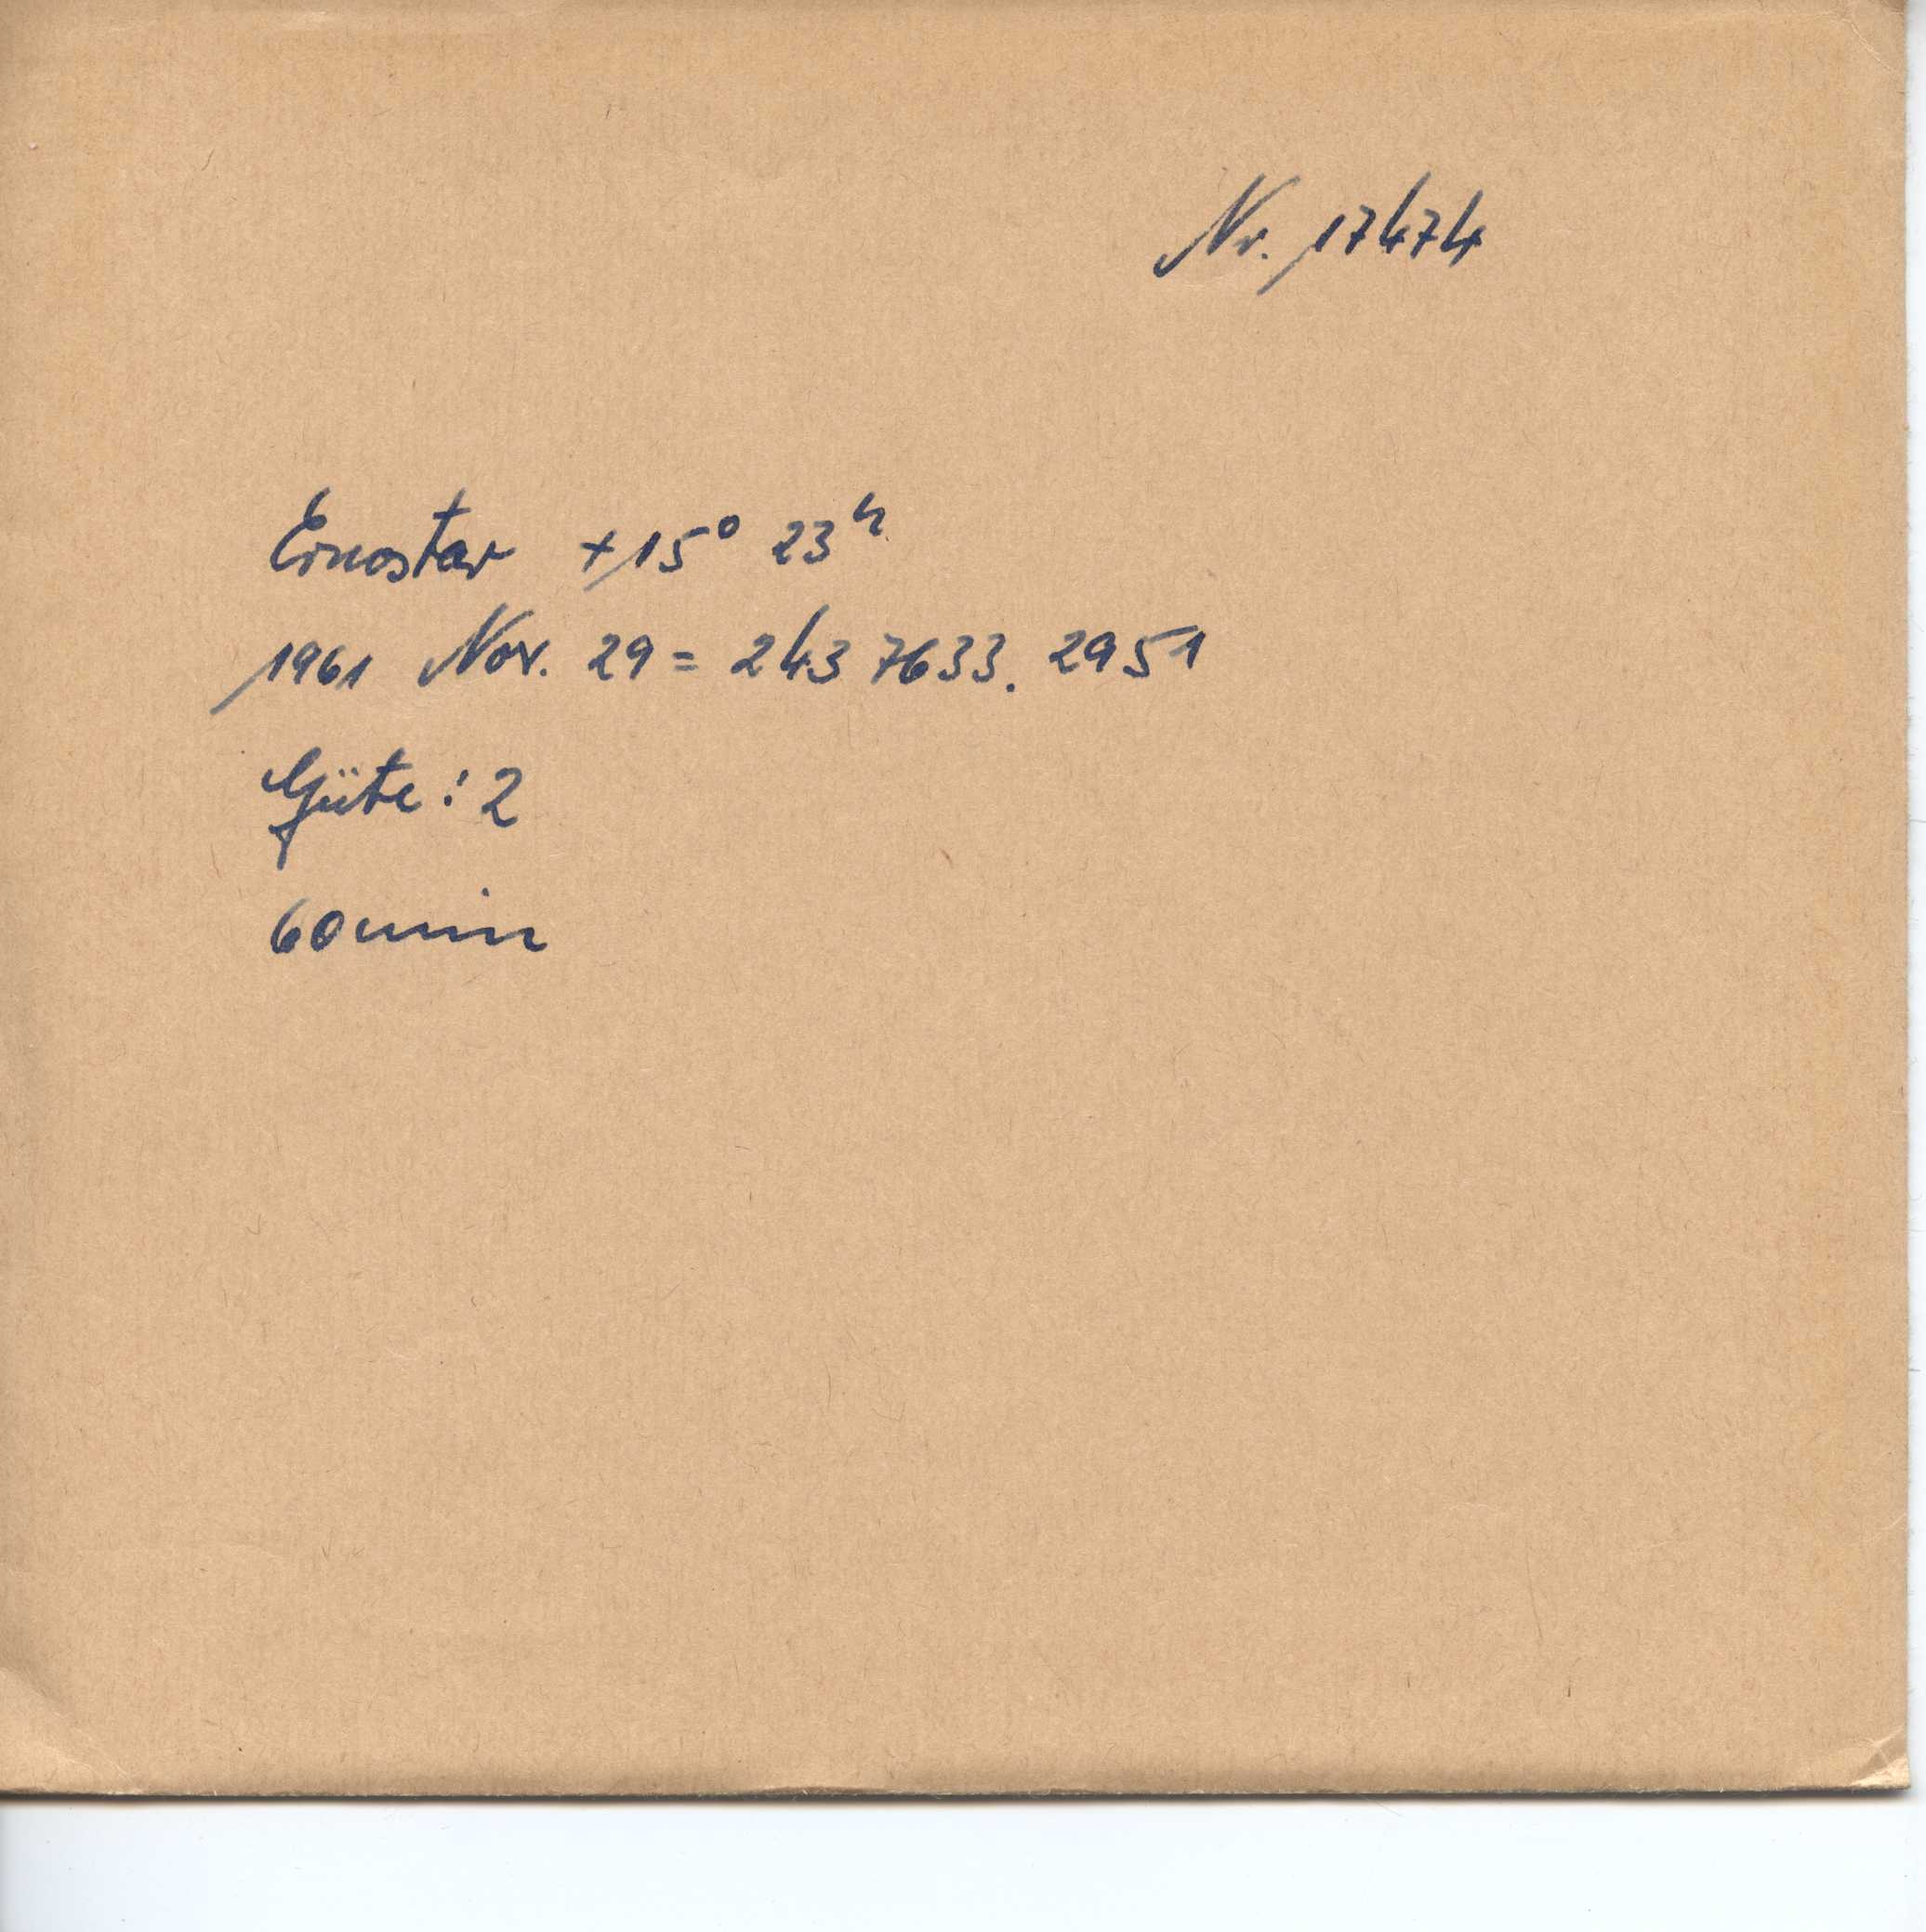 Nr. 17474
Ernostar +15° 23ʰ
1961 Nov. 29 = 243 7633. 2951
Güte: 2
60min